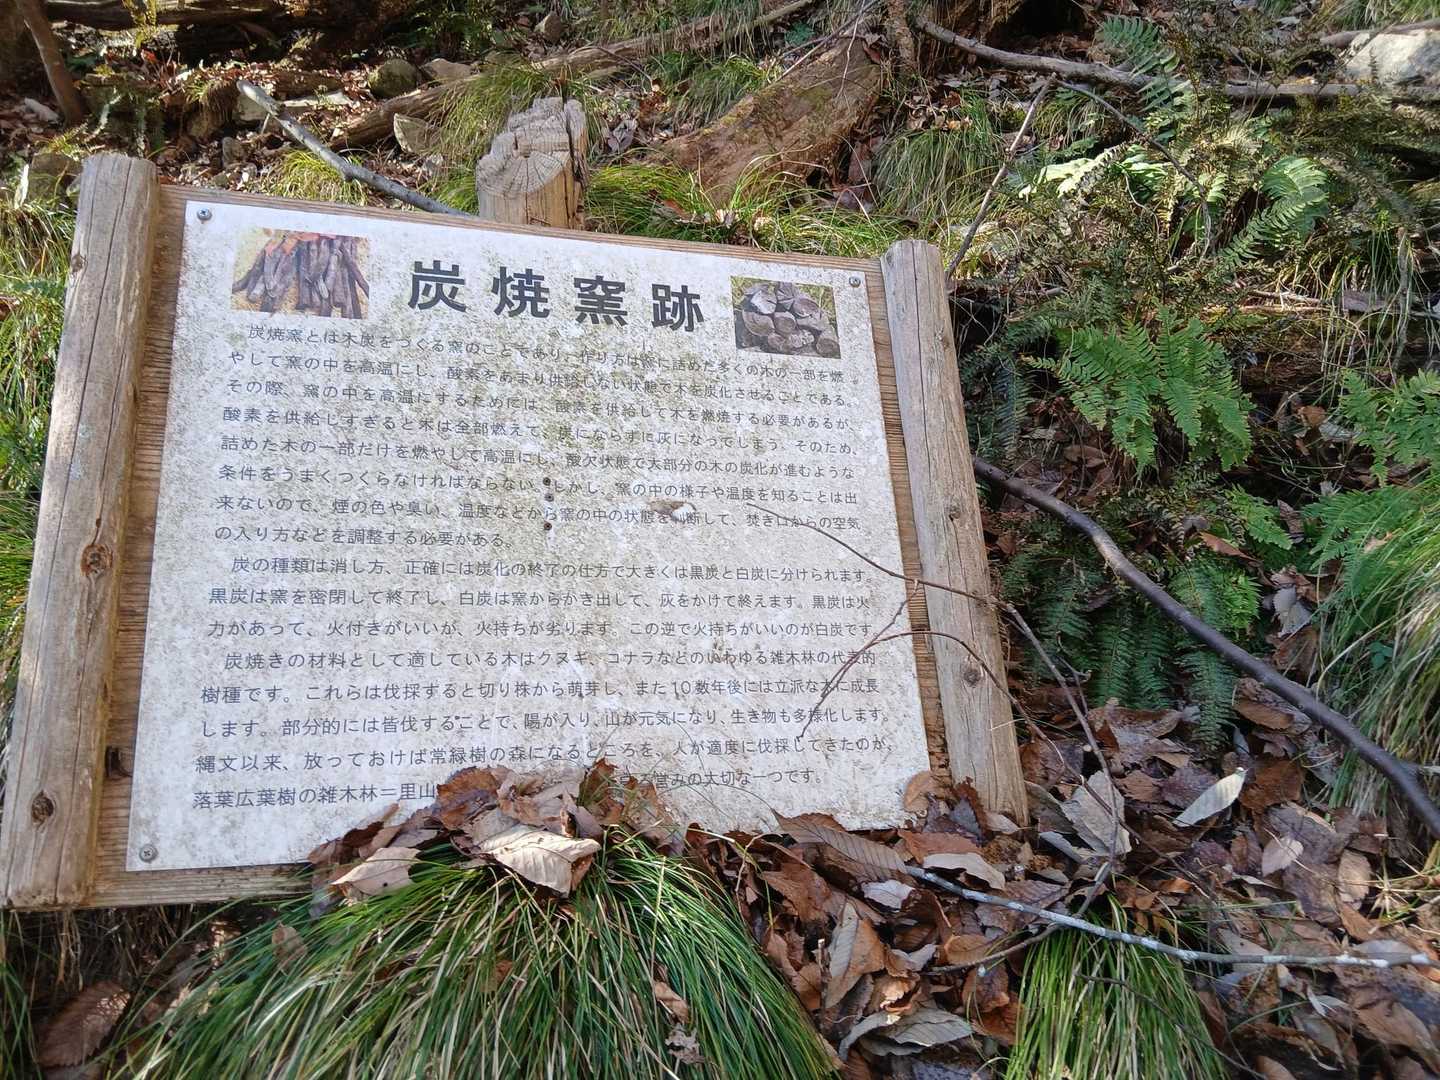 炭焼窯跡
炭焼窯とは木炭をつくる窯のことであり、作り方は窯に詰めた多くの木の一部を燃
やして窯の中を高温にし、酸素をあまり供給しない状態で木を炭化させることである。
その際、窯の中を高温にするためには、酸素を供給して木を燃焼する必要があるが、
酸素を供給しすぎると木は全部燃えて、炭にならずに灰になってしまう。そのため、
詰めた木の一部だけを燃やして高温にし、酸欠状態で大部分の木の炭化が進むような
条件をうまくつくらなければならない。しかし、窯の中の様子や温度を知ることは出
来ないので、煙の色や臭い、温度などから窯の中の状態を判断して、焚き口からの空気
の入り方などを調整する必要がある。
炭の種類は消し方、正確には炭化の終了の仕方で大きくは黒炭と白炭に分けられます。
黒炭は窯を密閉して終了し、白炭は窯からかき出して、灰をかけて終えます。黒炭は火
力があって、火付きがいいが、火持ちが劣ります。この逆で火持ちがいいのが白炭です
炭焼きの材料として適している木はクヌギ、コナラなどのいわゆる雑木林の代表的
樹種です。これらは伐採すると切り株から萌芽し、また10数年後には立派な木に成長
します。部分的には皆伐することで、陽が入り、山が元気になり、生き物も多様化します。
縄文以来、放っておけば常緑樹の森になるところを、人が適度に伐採してきたのが、
落葉広葉樹の雑木林＝里山 営みの大切な一つです。